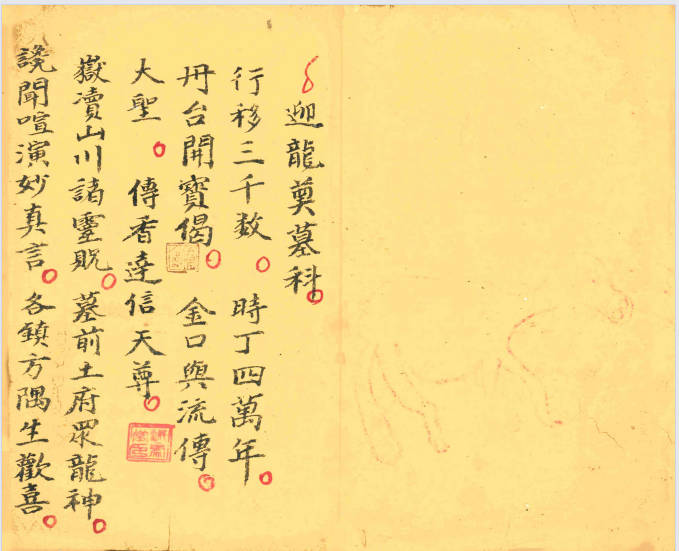 迎龍奠墓科
行移三千数 時丁四萬年
丹台開寶偈 金口與流傳
大聖 傳香達信天尊
嶽瀆山川諸靈貺 墓前土府眾龍神
讒聞喧演妙真言 各鎮方隅生歡喜